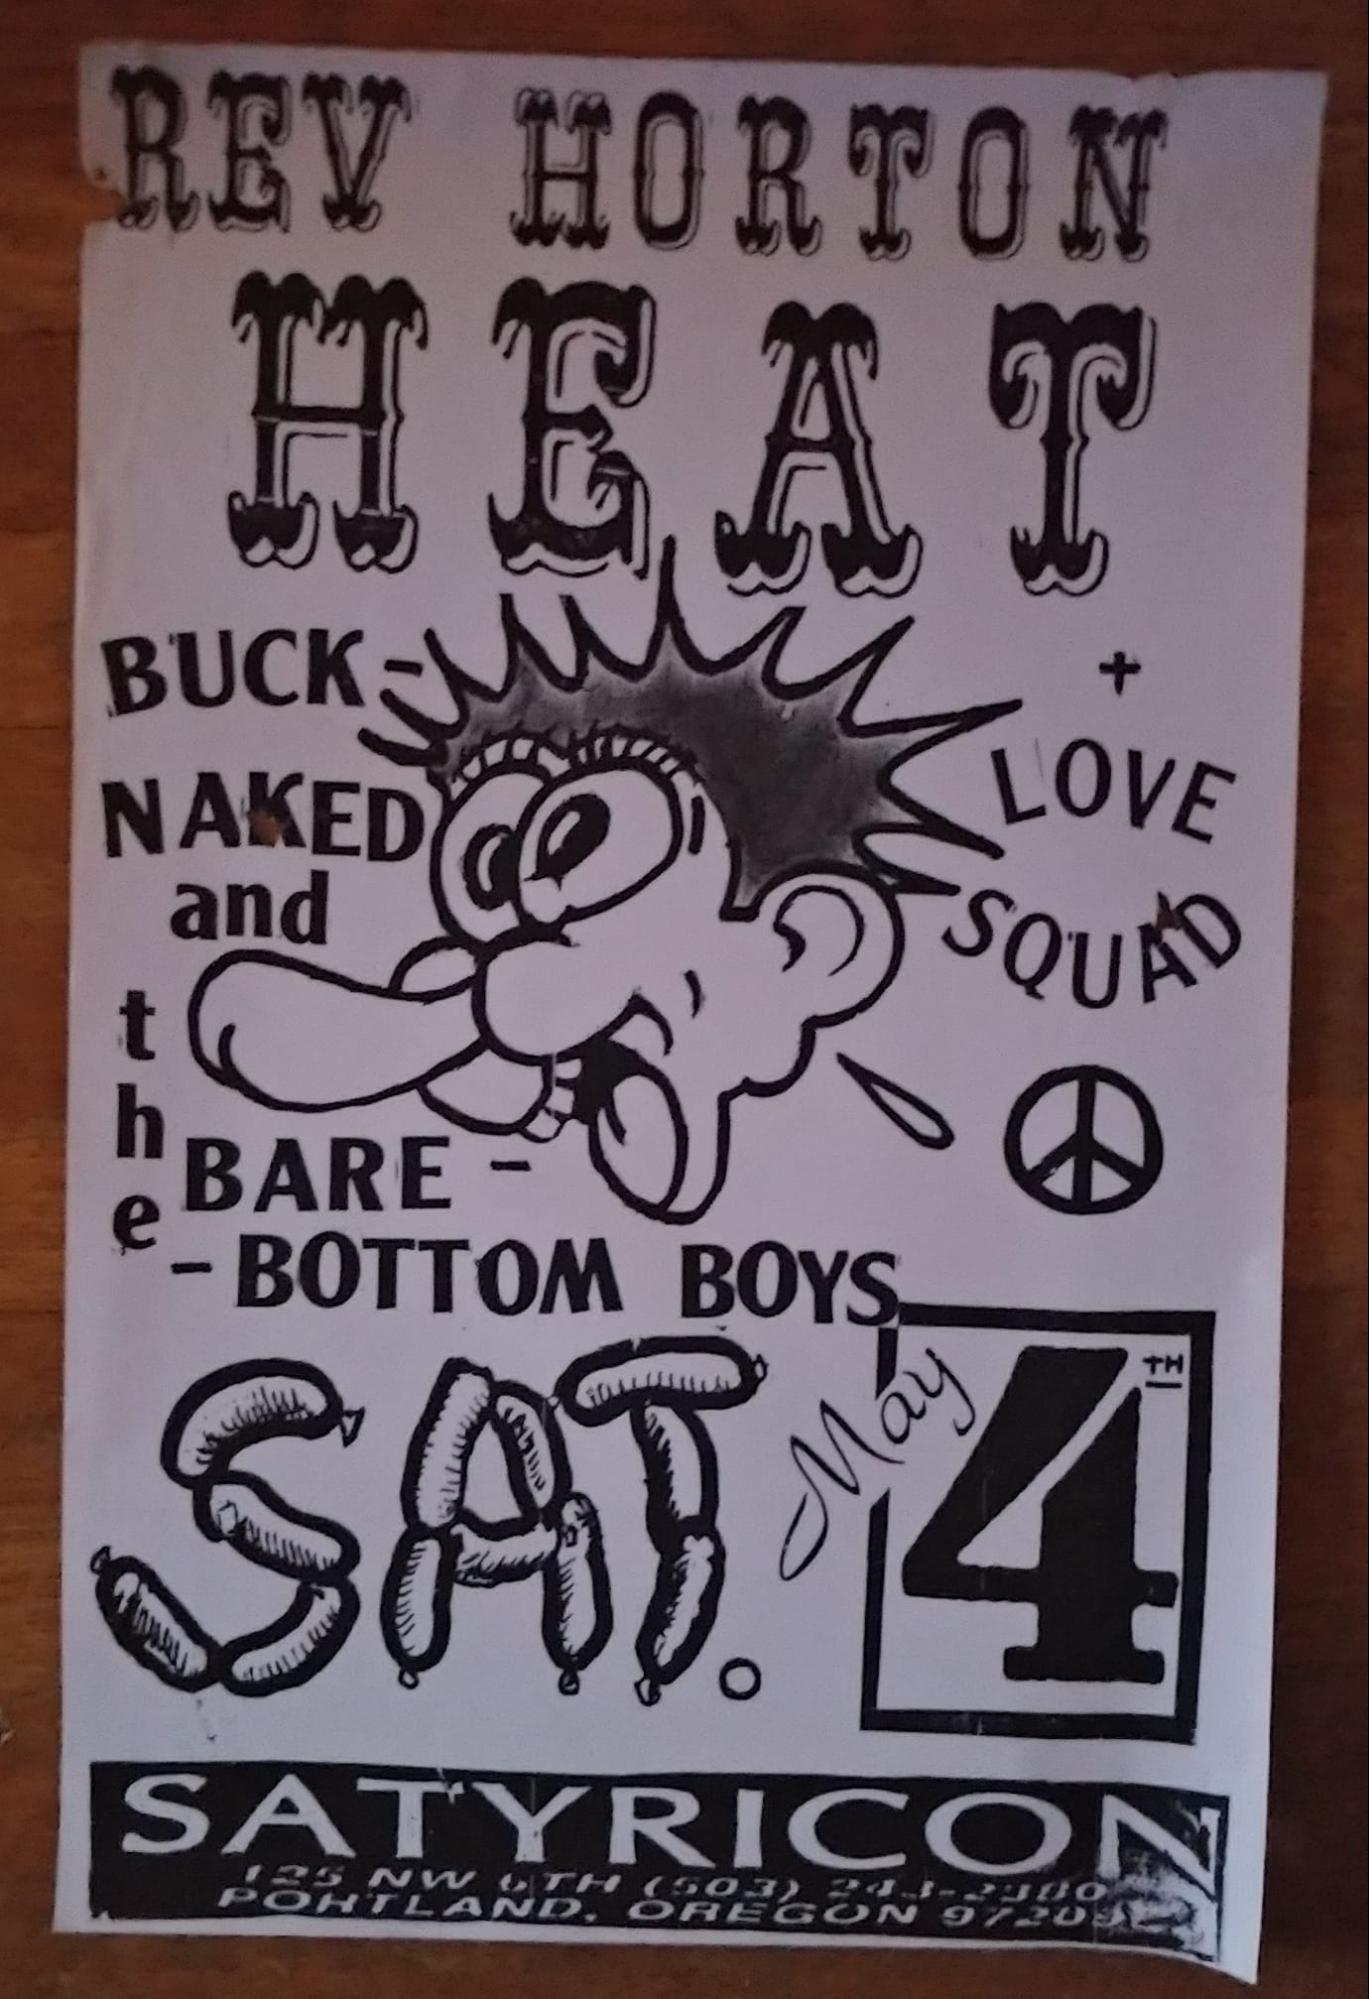 REV HORTON
HEAT
BUCK-
NAKED
and
the
BARE-
-BOTTOM BOYS
+
LOVE
SQUAD
SAT.
May
4TH
SATYRICON
125 NW 6TH (503) 243-2380
PORTLAND, OREGON